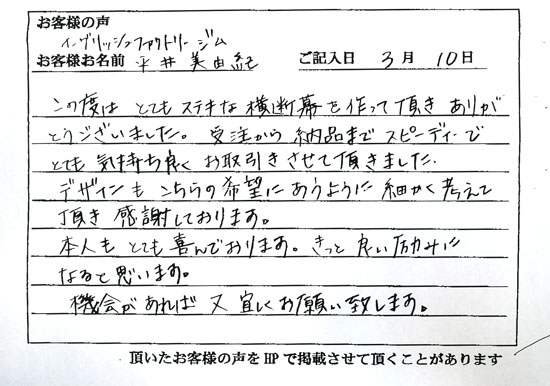 お客様の声
イングリッシュファクトリー ジム
お客様お名前 平井 美由紀 ご記入日 3月 10日
この度は とても ステキな 横断幕を 作って 頂き ありが
とうございました。 受注から 納品まで スピーディーで
とても 気持ち良く お取引きさせて頂きました。
デザインも こちらの希望に あうように 細かく 考えて
頂き 感謝しております。
本人も とても 喜んでおります。 きっと 良い励みに
なると 思います。
機会があれば 又 宜しく お願い致します。
頂いたお客様の声をHPで掲載させて頂くことがあります